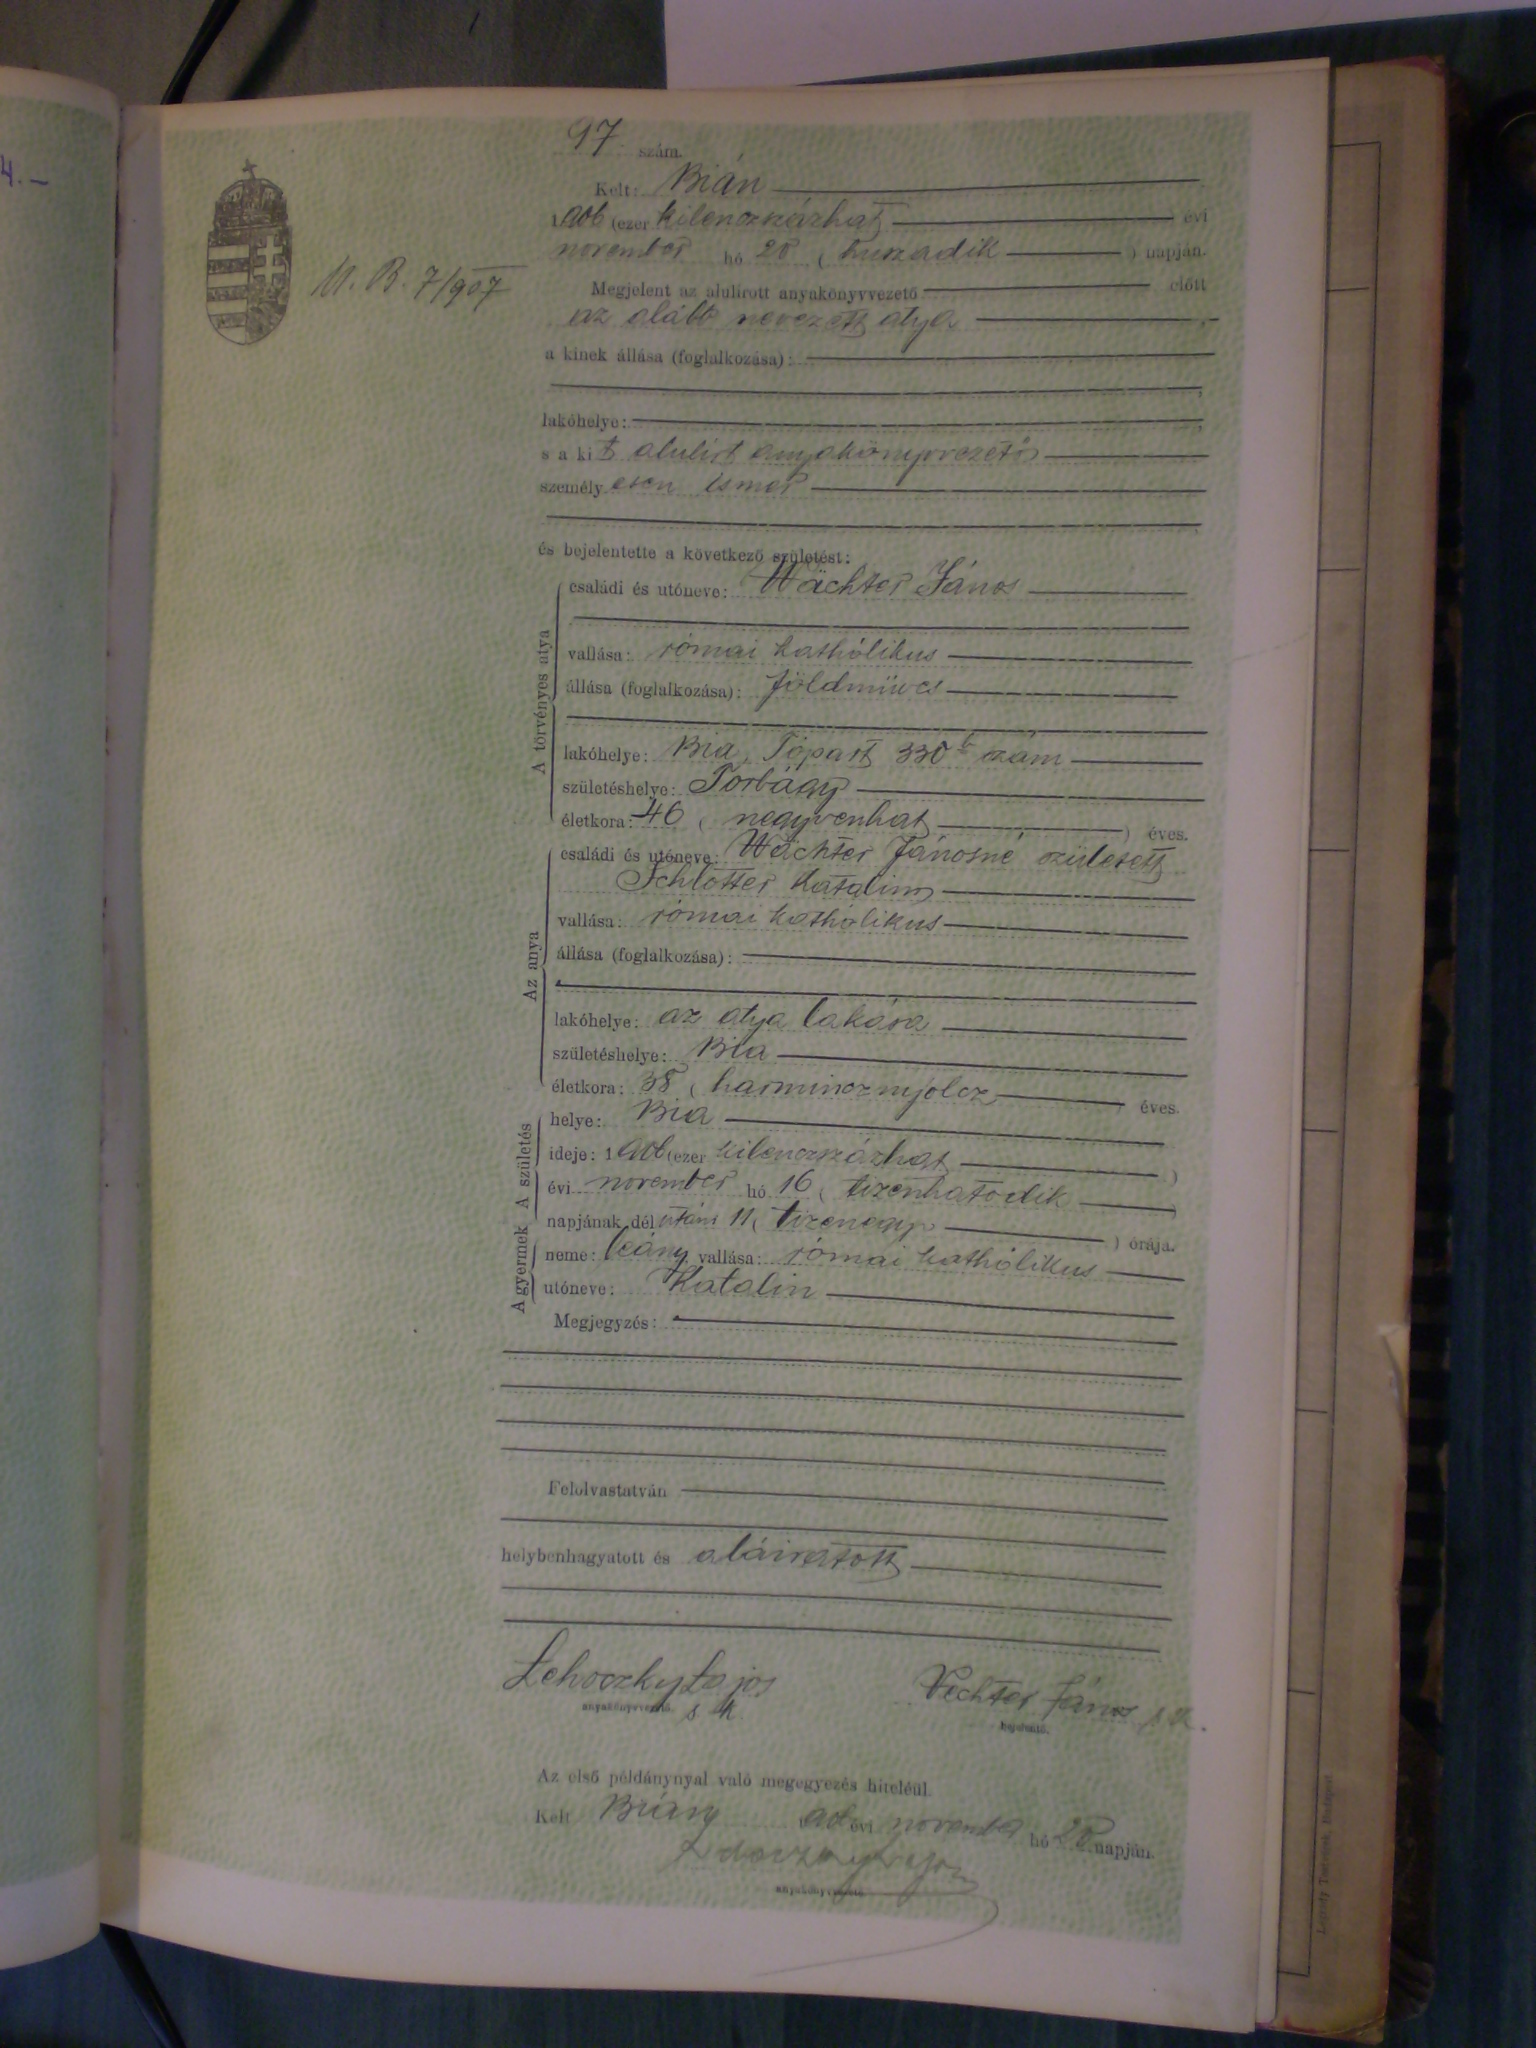 4. —
97 szám.
Kelt: Bián
1906 (ezer kilenczszázhat évi
november hó 20 ( huszadik ) napján.
M. B. 7/907
Megjelent az alulirott anyakönyvvezető előtt
az alább nevezett atya
a kinek állása (foglalkozása):
lakóhelye:
s a kit alulirt anyakönyvvezető
személyesen ismer
és bejelentette a következő születést:
A törvényes atya
családi és utóneve: Wächter János
vallása: római katholikus
állása (foglalkozása): földmüves
lakóhelye: Bia, Tópart 330 szám
születéshelye: Torbágy
életkora: 46 ( negyvenhat ) éves.
Az anya
családi és utóneve: Wächter Jánosné született
Schlotter Katalin
vallása: római katholikus
állása (foglalkozása):
lakóhelye: az atya lakása
születéshelye: Bia
életkora: 38 ( harmincznyolcz éves.
A gyermek A születés
helye: Bia
ideje: 1906 (ezer kilenczszázhat )
évi november hó 16 ( tizenhatodik )
napjának dél utáni 11 ( tizenegy ) órája.
neme: leány vallása: római katholikus
utóneve: Katalin
Megjegyzés:
Felolvastatván
helybenhagyatott és aláiratott
Lehoczky Lajos Vechter János s. k.
anyakönyvvezető. s k. bejelentő.
Az első példánynyal való megegyezés hiteléül.
Kelt Bián 1906 évi november hó 20 napján.
Lehoczky Lajos
anyakönyvvezető